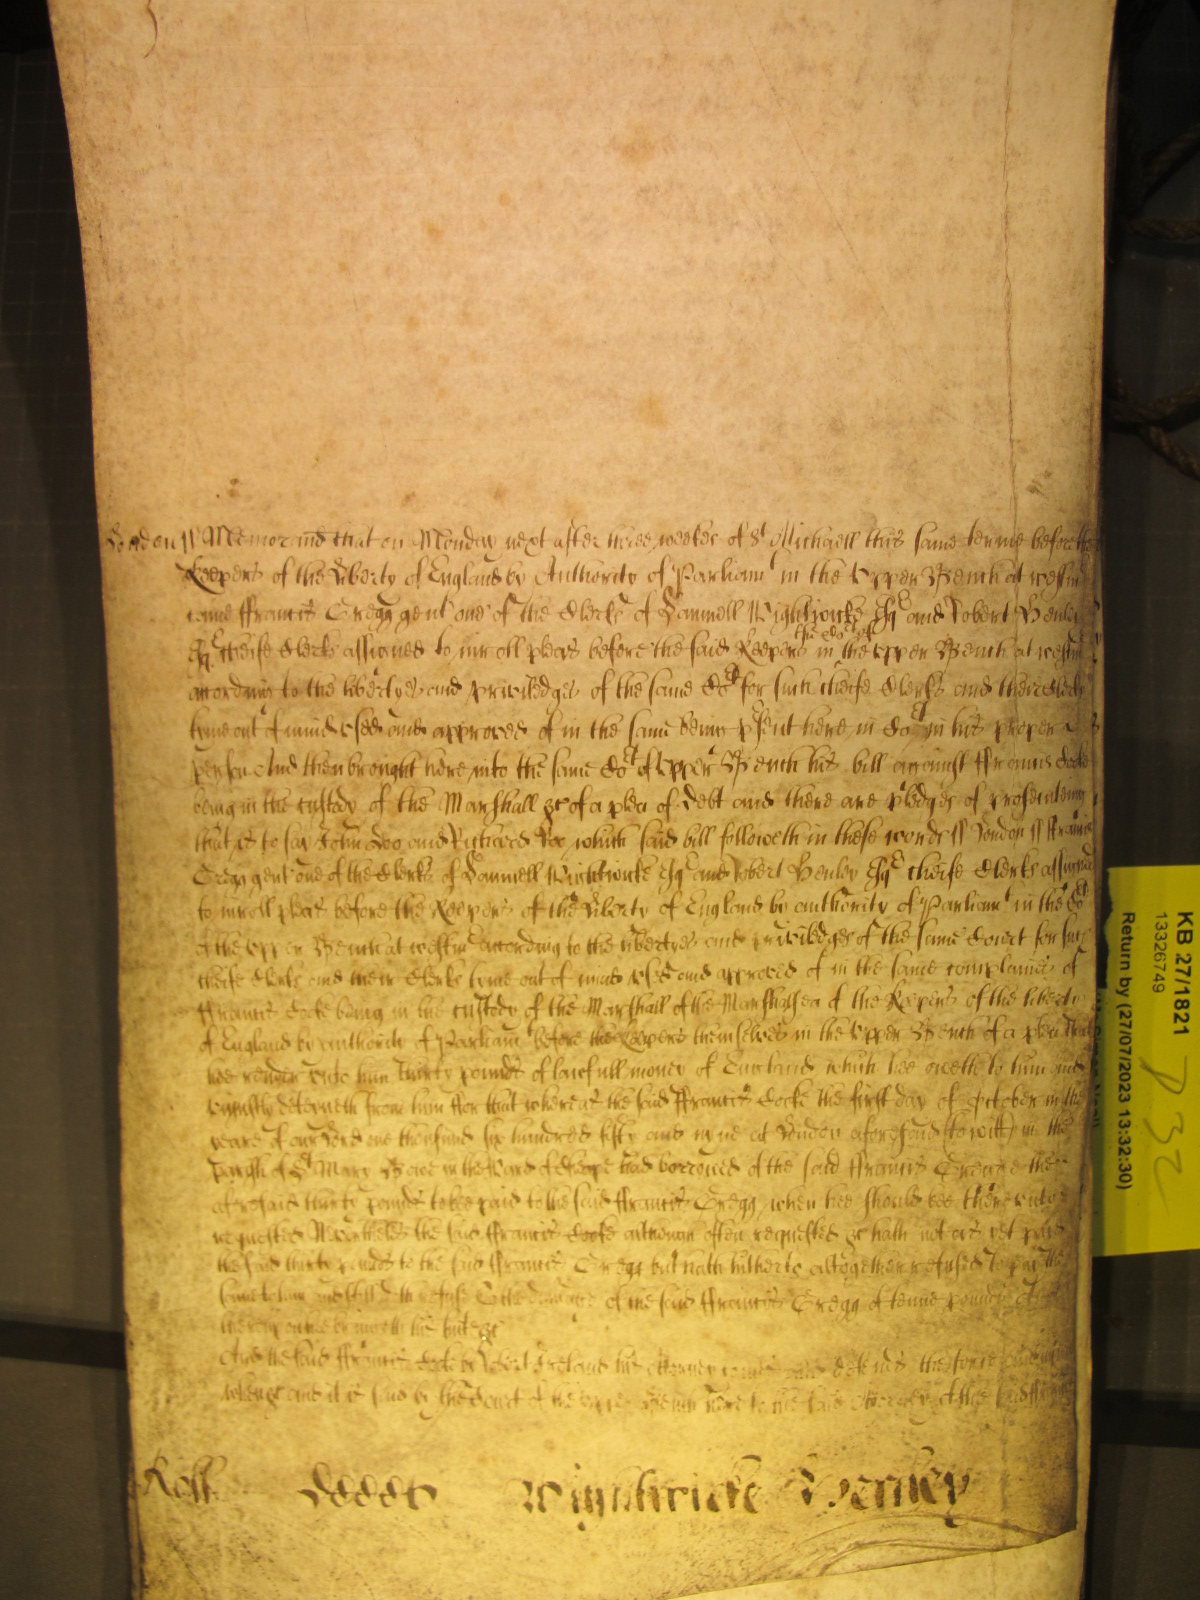 London ss Memorand that on Monday next after three weekes of St Michaell this same terme before the
Keepers of the Liberty of England by Authority of Parliamt in the Upper Bench at Westmr
came ffrancis Gregg gent one of the Clerks of Samuell Wightwicke Esqr and Robert Henley
Esqr Cheife Clerks assigned to inroll pleas before the said Keepers in the Upper Bench at Westmr
the Cort of
according to the libertyes and priviledges of the same Cort for such cheife Clerks and their Clerks
tyme out of mind used and approved of in the same being psent here in Cort in his proper
person And then brought here into the same Cort of Upper Bench his bill against ffrancis Cocke
being in the custody of the Marshall &c of a plea of Debt and there are pledges of prosecuting
that is to say John Doo and Richard Roo which said bill followeth in these words ss London ss ffrancis
Gregg gent one of the Clerks of Samuell Wightwicke Esqr and Robert Henley Esqr cheife Clerks assigned
to inroll pleas before the Keepers of the Liberty of England by authority of Parliamt in the Cort
of the Upper Bench at Westmr according to the libertyes and priviledges of the same Court for such
cheife Clerks and their Clerks tyme out of mind used and approved of in the same complaines of
ffrancis Cocke being in the custody of the Marshall of the Marshalsea of the Keepers of the liberty
of England by authority of Parliamt before the Keepers themselves in the Upper Bench of a plea that
hee render unto him thirty pounds of lawfull money of England which hee oweth to him and
uniustly deteyneth from him ffor that whereas the said ffrancis Cocke the first day of October in the
yeare of our Lord one thousand six hundred fifty and nyne at London aforesaid to witt in the
Parish of St Mary Bowe in the Ward of Cheape had borrowed of the said ffrancis Gregg the
aforesaid thirty pounds to bee paid to the said ffrancis Gregg when hee should bee thereunto
requested Neverthelesse the said ffrancis Cocke although often requested &c hath not as yet paid
the said thirty pounds to the said ffrancis Gregg but hath hitherto altogether refused to pay the
same to him and still doth refuse To the damage of the said ffrancis Gregg of tenne pounds And
thereupon he bringeth his suite &c
And the said ffrancis Cocke by Ireland his Attorney comes and defends the force and
when &c and it is said by the Court of the Upper Bench here to the said Attorney of the said
Roll Wightwicke Henley
KB 27/1821
13326749
Return by (27/07/2023 13:32:30)